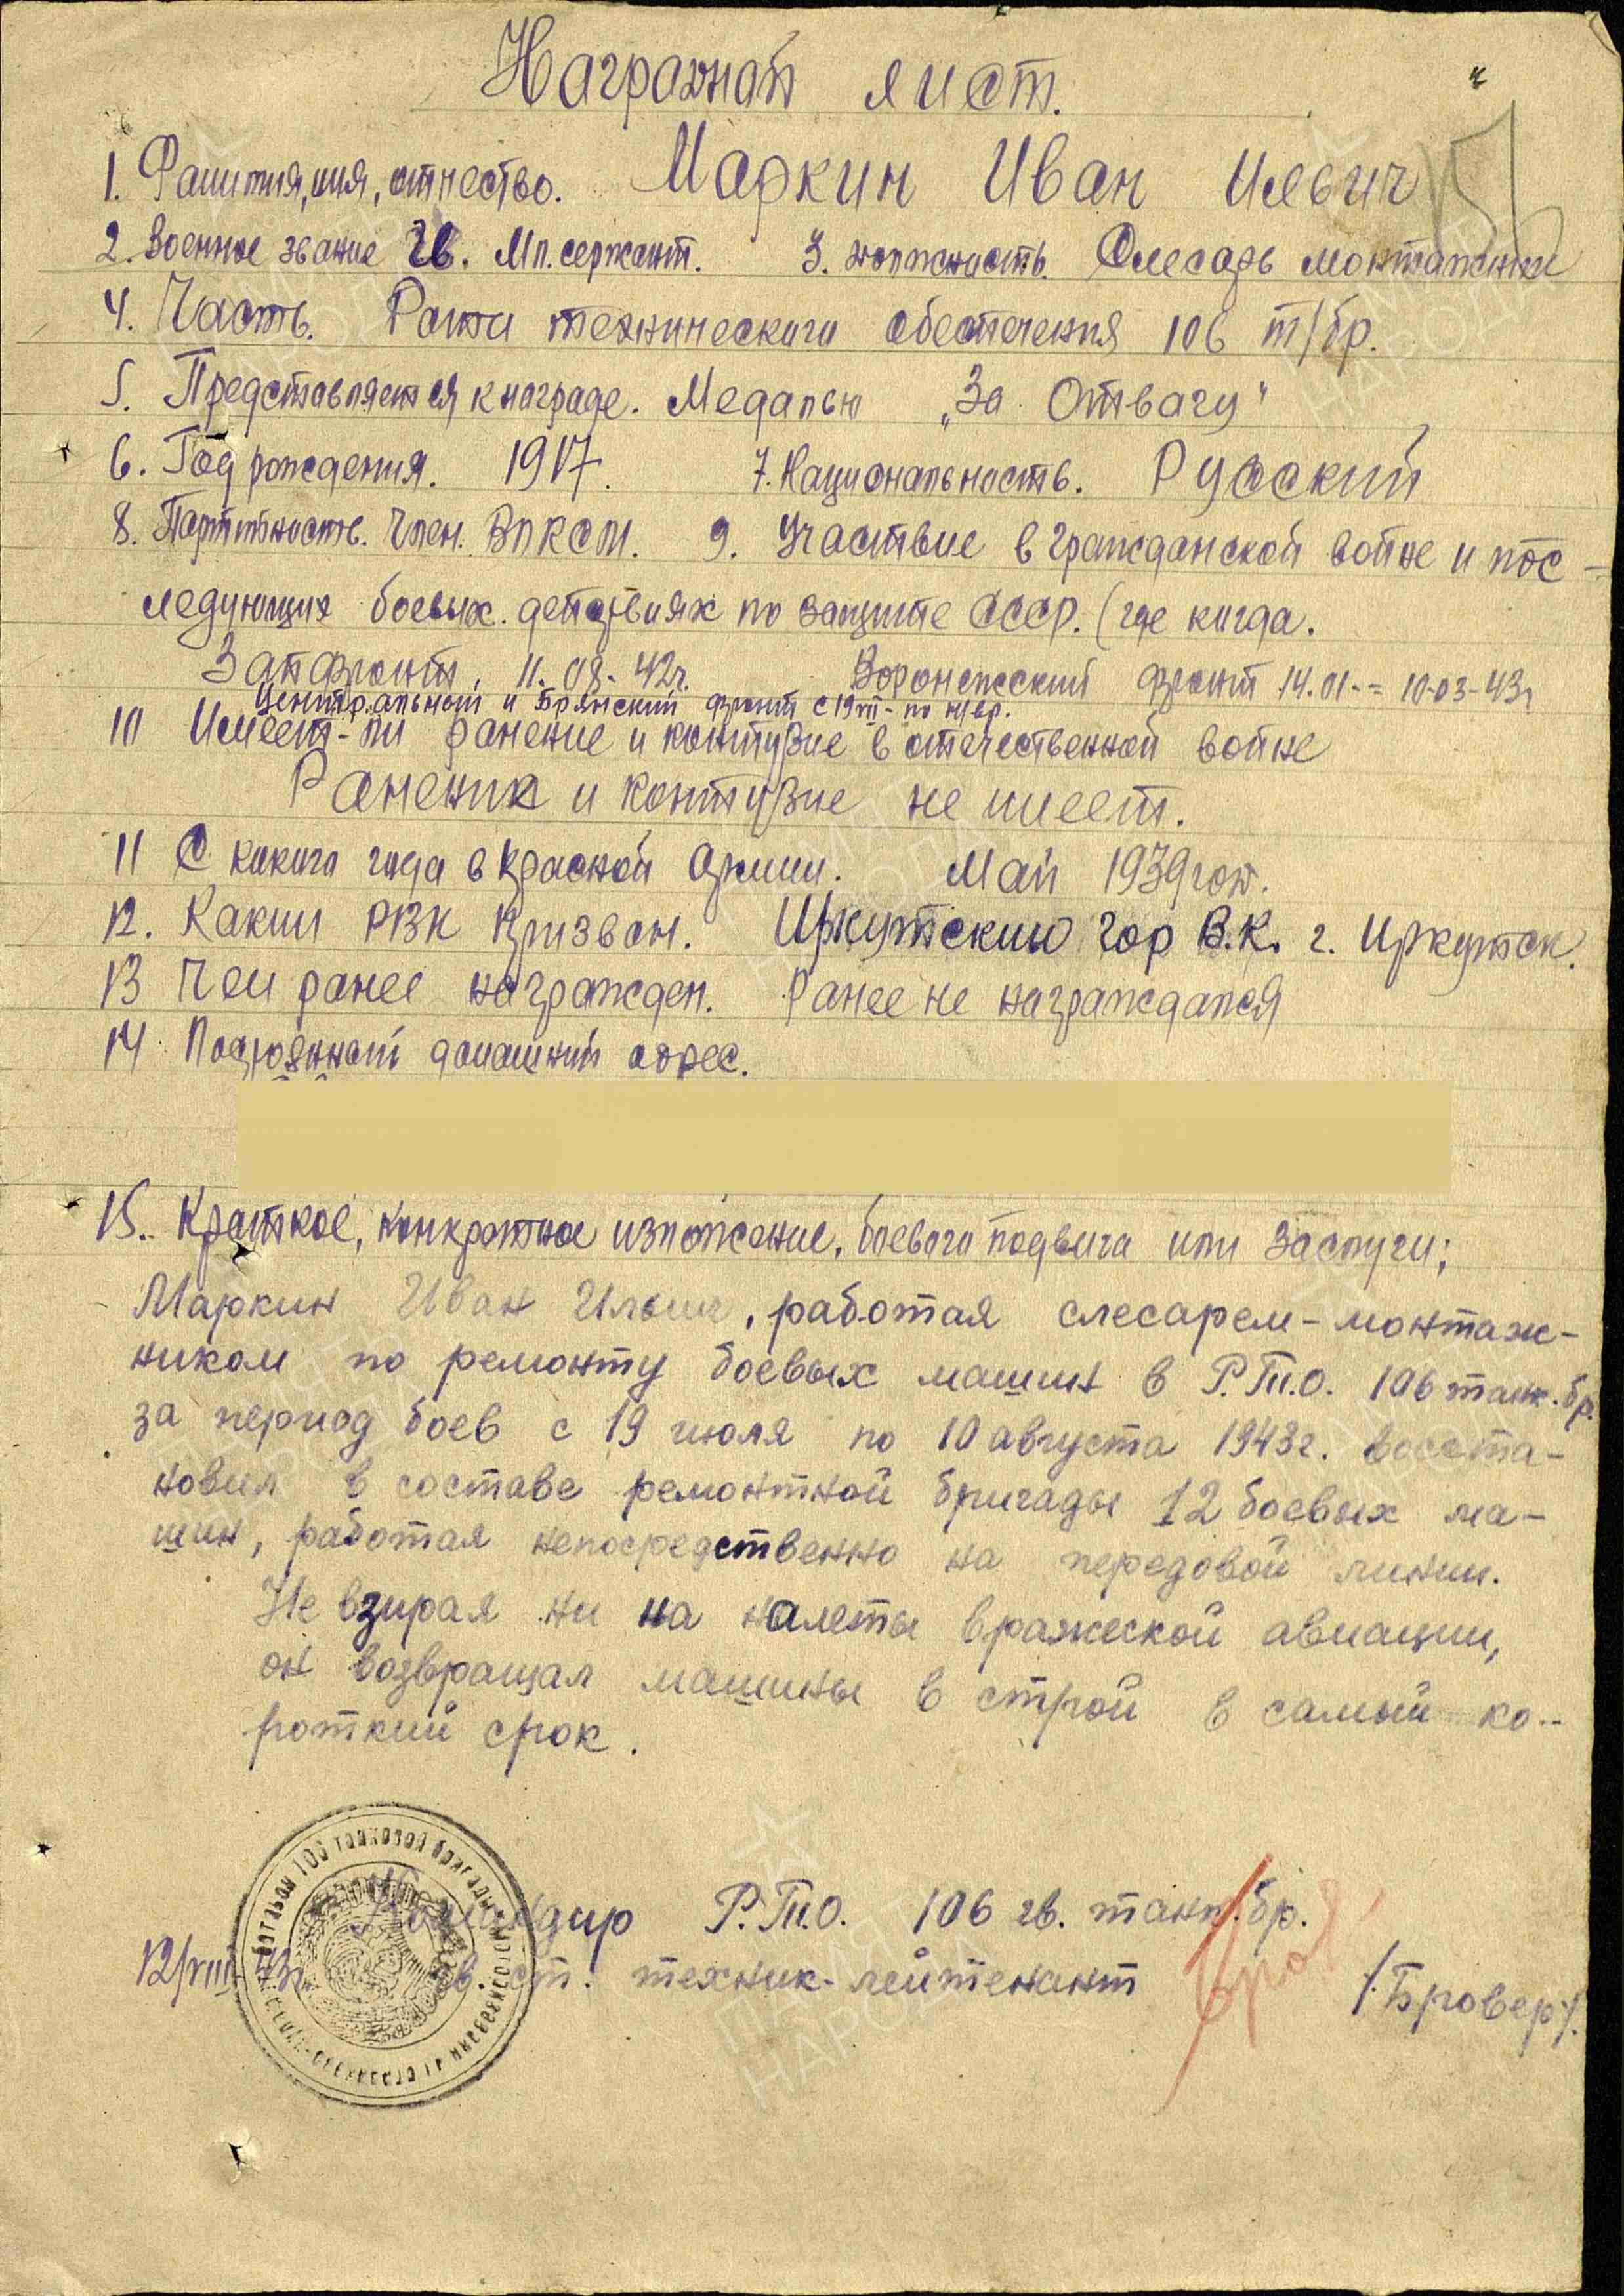 Наградной лист.
1. Фамилия, имя, отчество. Маркин Иван Ильич
2. Военное звание Гв. Мл. сержант. 3. должность. Слесарь монтажник
4. Часть. Роты технического обеспечения 106 т/бр.
5. Представляется к награде. Медалью „За Отвагу"
6. Год рождения. 1917. 7. Национальность. Русский
8. Партийность. Член. ВЛКСМ. 9. Участвие в гражданской войне и пос-
ледующих боевых. действиях по защите СССР. (где когда.
Зап фронт. 11.08-42г. Воронежский фронт 14.01-= 10-03-43г
Центральный и Брянский фронт с 19 VII - по н/вр.
10 Имеет-ли ранение и контузие в отечественной войне
Раненик и контузие не имеет.
11 С какого года в Красной Армии. Май 1939год.
12. Каким РВК призван. Иркутскию гор В.К. г. Иркутск.
13 Чем ранее награжден. Ранее не награждался
14 Постоянный домашний адрес.
15. Краткое, конкретное изложение, боевого подвига или заслуги;
Маркин Иван Ильич, работая слесарем-монтаж-
ником по ремонту боевых машин в Р.Т.О. 106 танк. бр.
за период боев с 19 июля по 10 августа 1943г. восста-
новил в составе ремонтной бригады 12 боевых ма-
шин, работая непосредственно на передовой линии.
Не взирая ни на налеты вражеской авиации,
он возвращал машины в строй в самый ко-
роткий срок.
Командир Р.Т.О. 106 гв. танк. бр.
12/VIII-43г. гв. ст. техник-лейтенант /Бровер/.
ПАМЯТЬ НАРОДА